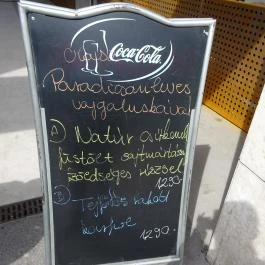 Coca-Cola
Paradicsomleves
vajgaluskával
A) Natúr csirkemell
füstölt sajtmártással
zöldséges rizzsel
1290.-
B) Tejfölös rakott
1290.-